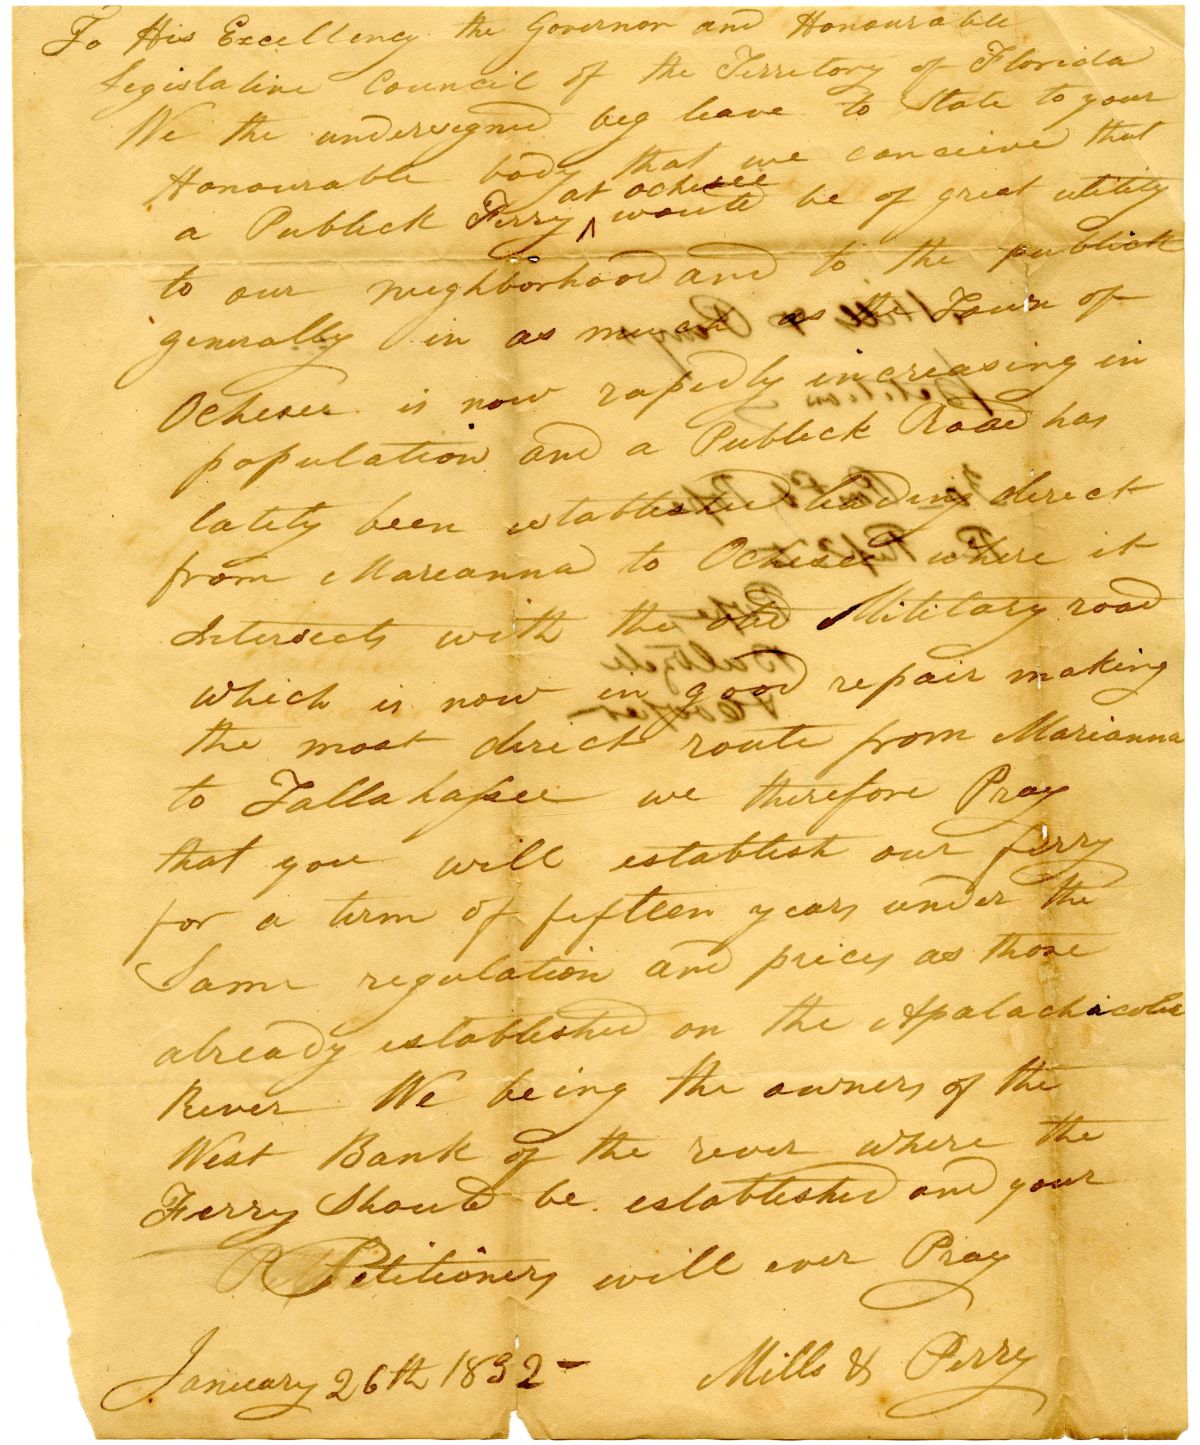 To His Excellency the Governor and Honourable
Legislative Council of the Territory of Florida
We the undersigned beg leave to State to your
Honourable body that we conceive that
at ochesee
a Publick Ferry ^ would be of great utility
to our neighborhood and to the publick
generally in as much as the Town of
Ochesee is now rapedly increasing in
population and a Publick Road has
lately been established leading direct
from Mareanna to Ochesee where it
Intersects with the old Militarey road
which is now in good repair making
the most direct route from Marianna
to Tallahassee we therefore Pray
that you will establish our ferry
for a term of fifteen years under the
Same regulation and prices as those
already established on the Apalachicola
River We being the owners of the
West Bank of the rever where the
Ferry Should be established and your
Petitioners will ever Pray
January 26th 1832 -
Mills & Perry